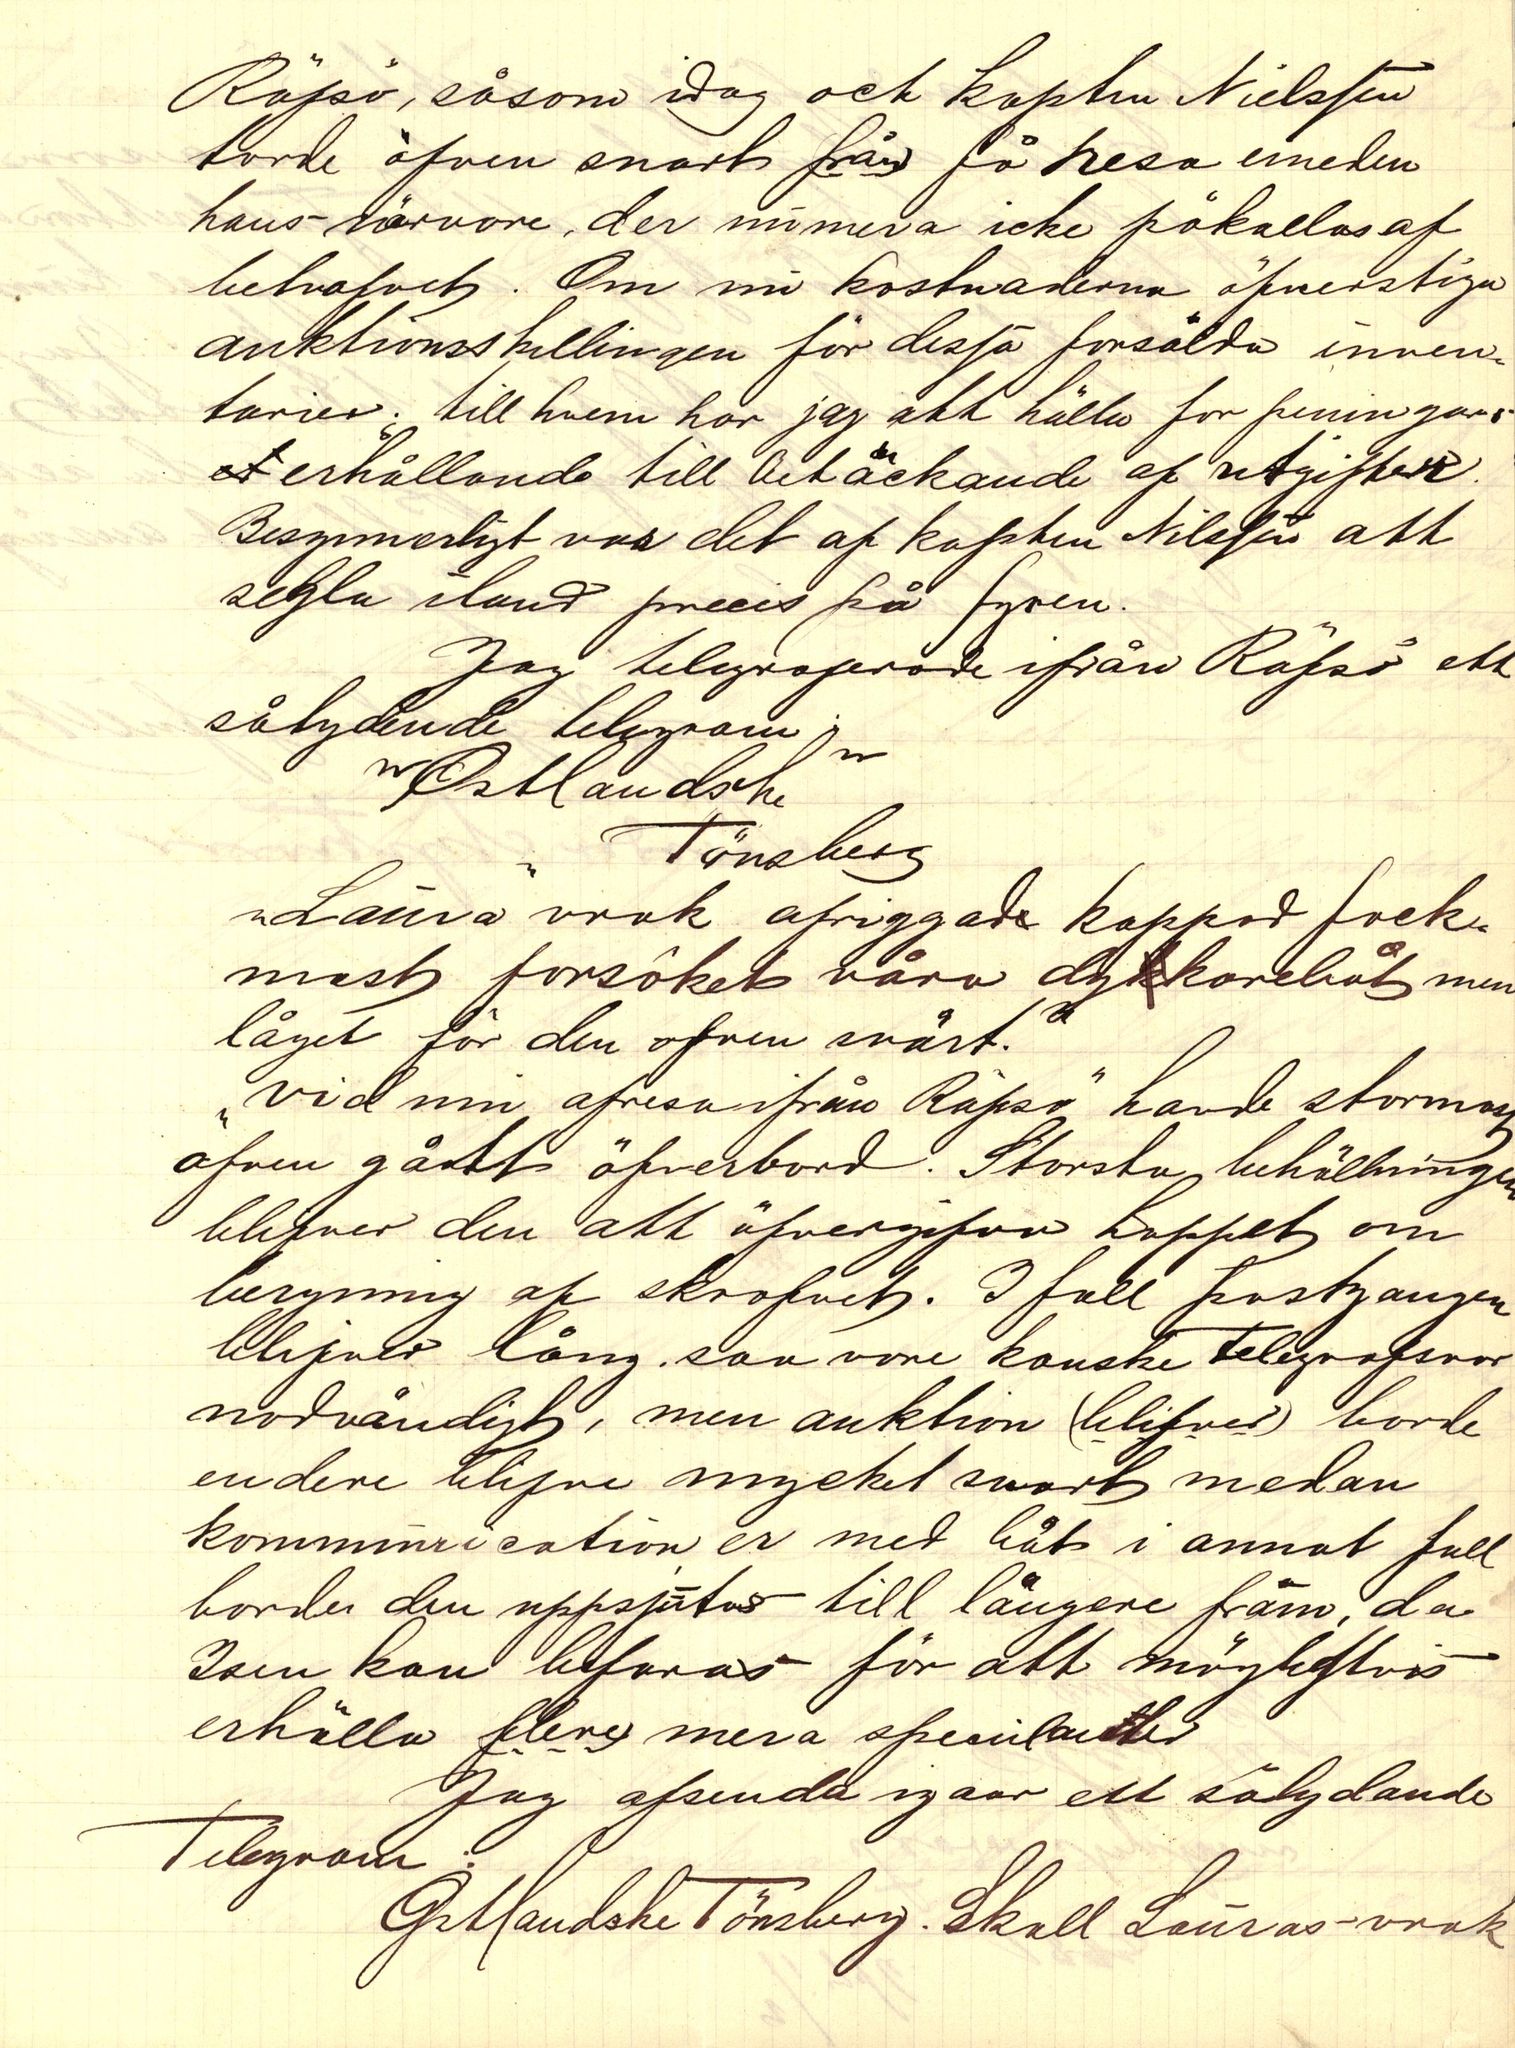 Räfsö, såsom idag och kapten Nielssen
torde äfven snart från få resa emedan
hans närvare, der numera icke påkallas af
behofvet. Om nu kostnaderna öfverstiga
auktionsskillingen för dessa försålda inven-
tarier. till hvem har jag att hålla for peningars
erhållande till betäckande af utgifter.
Besynnerligt var det af kapten Nilssen att
segla iland precis på fyren.
Jag telegraferade ifrån Räfsö ett
sålydende telegram:
"Ostlandske"
Tönsberg
"Laura" vrak afriggade kappad fock-
mast försöket våra dykkarebåt men
läget för den ofven svårt."
Vid min afresa ifrån "Räfsö" hande stormast
äfven gått öfverbord. Storsta behållningen
blifver den att öfvergifva hoppet om
bergning af skrofvet. I fall postgangen
blifver lång. saa vore kanske Telegrafsvar
nodvändigt, men auktion (blifver) borde
endere blifve mycket snart medan
kommunication er med båt i annat fall
bordes den uppsjutas till längere fram, da
Isen kan befaras för att möyligtvis
erhålla flere mera speculanter
Jag afsenda igaar ett sålydande
Telegram:
Östlandske Tönsberg. Skall Lauras vrak